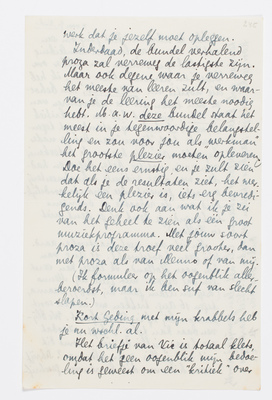 werk dat je jezelf moet opleggen.
Inderdaad, de bundel verhalend
proza zal verreweg de lastigste zijn.
Maar ook degene, waar je verreweg
het meeste van leren zult, en waar-
van je de leering het meeste noodig
hebt. M.a.w. deze bundel staat het
meest in je tegenwoordige belangstel-
ling en zou voor jou als "werkman"
het grootste plezier moeten opleveren.
Doe het eens ernstig en je zult zien
dat als je de resultaten ziet, het wer-
kelijk een plezier is, iets erg bevredi-
gends. Denk ook aan wat ik je zei
van het geheel te zien als één groot
muziekprogramma. Met jouw soort
proza is deze troef veel grooter, dan
met proza als van Menno of van mij.
(Ik formuleer op het oogenblik aller-
beroerdst, maar ik ben suf van slecht
slapen.)
Kort Geding met mijn krabbels heb
je nu wschl. al.
Het briefje van Vic is totaal klets,
omdat het geen oogenblik mijn bedoe-
ling is geweest om een "kritiek" over